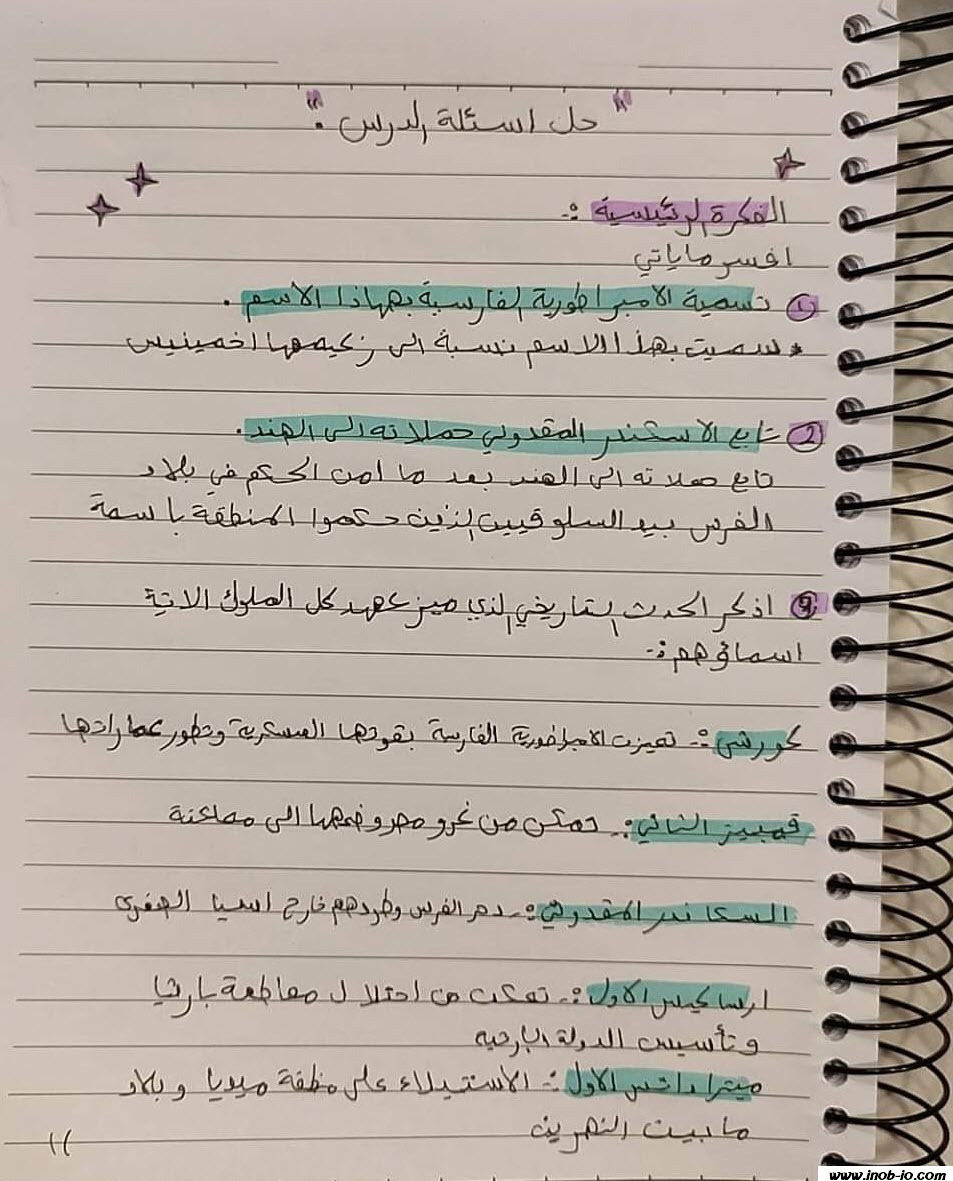 " حل اسئلة الدرس ."
الفكرة الرئيسية :-
افسر ماياتي
① تسمية الامبراطورية الفارسية بهاذا الاسم .
• سميت بهذا الاسم نسبة الى زعيمها اخمينيس
② تابع الاسكندر المقدوني حملاته الى الهند .
تابع حملاته الى الهند بعد ما امن الحكم في بلاد
الفرس بيد السلوقيين الذين حكموا المنطقة باسمة
اذكر الحدث التاريخي الذي ميز عهد كل الملوك الاتية
اسماؤهم :-
كورش :- تميزت الامبراطورية الفارسة بقوتها العسكرية وتطور عماراتها
قمبيز الثاني :- تمكن من غزو مصر وضمها الى مملكتة
السكاندر المقدوني :- دحر الفرس وطردهم خارج اسيا الصغرى
ارساكيس الاول :- تمكن من احتلال مقاطعة بارثيا
وتأسيس الدولة البارثيه
ميتراداتس الاول :- الاستيلاء على منطقة ميديا وبلاد
مابين النهرين
www.inob-io.com